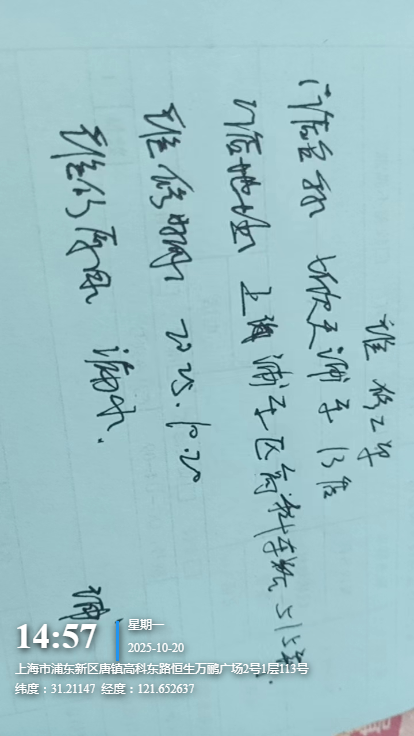 维修工单
门店名称 必胜客浦东13店
门店地址 上海浦东区高科东路515号
维修时间 2025.10.20
维修原因 漏水.
14:57
星期一
2025-10-20
上海市浦东新区唐镇高科东路恒生万鹏广场2号1层113号
纬度：31.21147 经度：121.652637